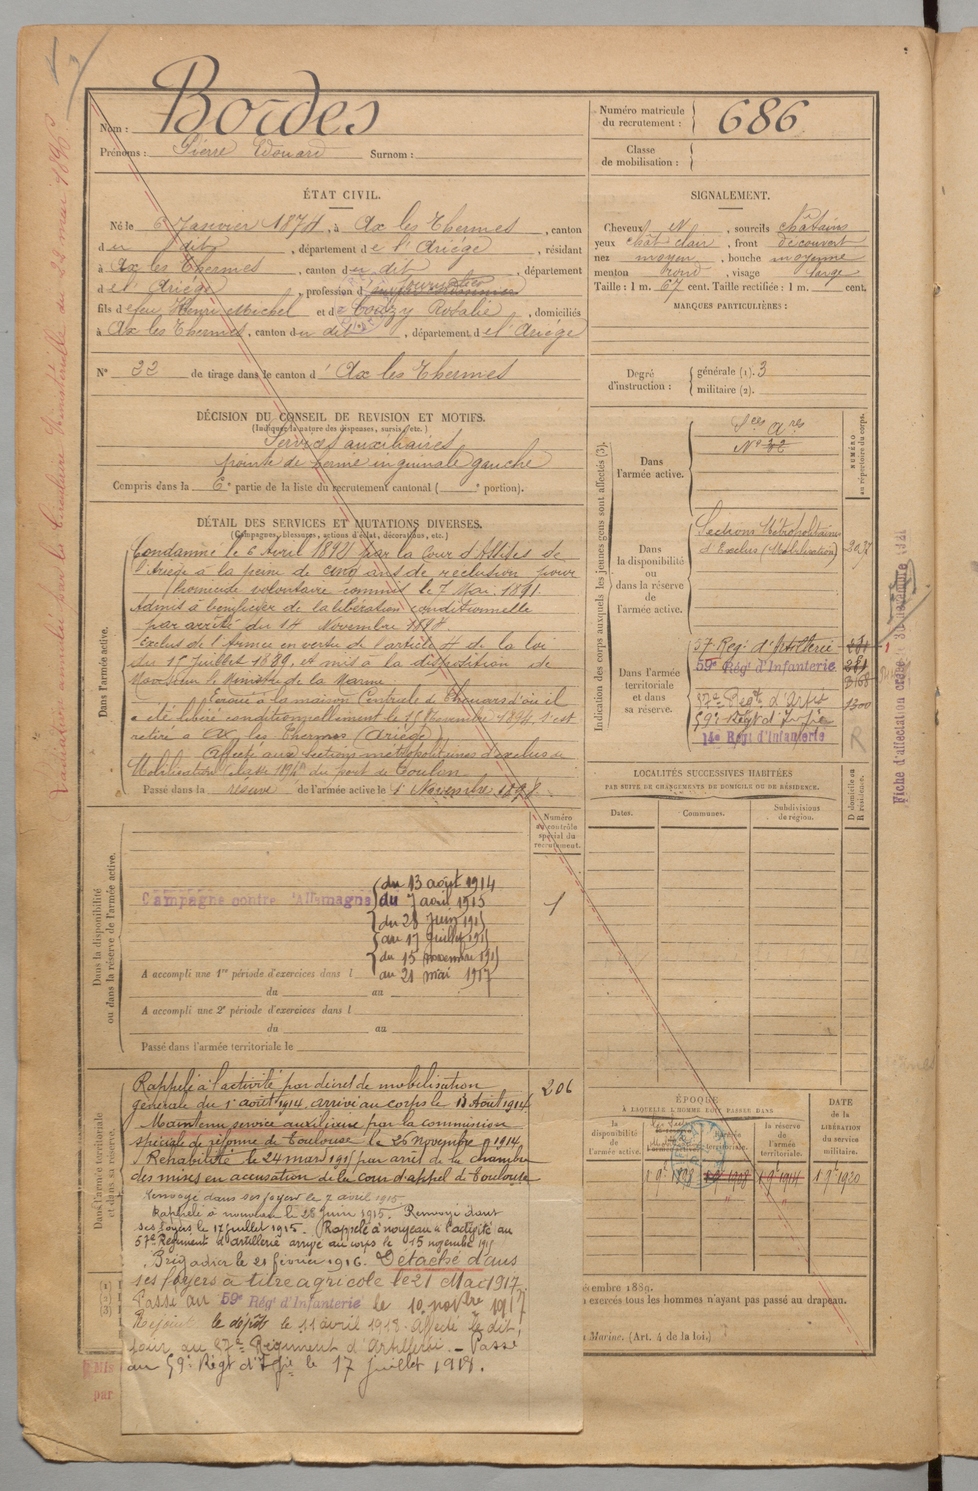 Nom : Bordes
Prénoms : Pierre Edouard Surnom :
Numéro matricule du recrutement : 686
Classe de mobilisation :
ÉTAT CIVIL.
Né le 6 Janvier 1874, à Ax les Thermes, canton
du dit, département de l'Ariège, résidant
à Ax les Thermes, canton du dit, département
de l'Ariège, profession d
fils de feu Henri Michel et de Rosalie, domiciliés
à Ax les Thermes, canton du dit, département de l'Ariège
N° 22 de tirage dans le canton d'Ax les Thermes
DÉCISION DU CONSEIL DE REVISION ET MOTIFS.
(Indiquer la nature des dispenses, sursis, etc.)
Services auxiliaires
pointe de hernie inguinale gauche
Compris dans la 6e partie de la liste du recrutement cantonal ( e portion).
SIGNALEMENT.
Cheveux N, sourcils châtains
yeux chât clair, front découvert
nez moyen, bouche moyenne
menton rond, visage large
Taille : 1 m. 67 cent. Taille rectifiée : 1 m. cent.
MARQUES PARTICULIÈRES :
Degré d'instruction : générale (1). 3
militaire (2).
DÉTAIL DES SERVICES ET MUTATIONS DIVERSES.
(Campagnes, blessures, actions d'éclat, décorations, etc.)
Dans l'armée active.
Condamné le 6 Avril 1892 par la Cour d'Assises de
l'Ariège à la peine de cinq ans de reclusion pour
homicide volontaire commis le 7 Mai 1891.
Admis à bénéficier de la libération conditionnelle
par arrêté du 14 Novembre 1894.
Exclus de l'Armée en vertu de l'article 4 de la loi
du 15 Juillet 1889, et mis à la disposition de
Monsieur le Ministre de la Marine.
Ecroué à la maison Centrale de Thouars d'où il
a été libéré conditionnellement le 15 Novembre 1894. S'est
retiré à Ax les Thermes (Ariège)
Affecté aux Sections métropolitaines d'exclus
Mobilisation du port de Toulon
Passé dans la réserve de l'armée active le 1 Novembre 1898.
Indication des corps auxquels les jeunes gens sont affectés (3).
NUMÉRO au répertoire du corps.
Dans l'armée active.
Ces Ares
N° 22
Dans la disponibilité ou dans la réserve de l'armée active.
Sections Métropolitaines
d'Exclus (Mobilisation)
Dans l'armée territoriale et dans sa réserve.
57 Reg. d'Artillerie
59e Rég' d'Infanterie
3168
57e Regt d'Artie 1300
59e Régt d'Infie
14e Rég' d'Infanterie R
Fiche d'affectation créée
LOCALITÉS SUCCESSIVES HABITÉES
PAR SUITE DE CHANGEMENTS DE DOMICILE OU DE RÉSIDENCE.
Dates.
Communes.
Subdivisions de région.
D domicile ou R résidence.
Numéro au contrôle spécial du recrutement.
Dans la disponibilité ou dans la réserve de l'armée active.
Campagne contre l'Allemagne
du 13 août 1914
du 7 avril 1915
du 28 Juin 1915
au 17 Juillet 1915
du 15 novembre 1915
au 21 mai 1917
1
A accompli une 1re période d'exercices dans l
du au
A accompli une 2e période d'exercices dans l
du au
Passé dans l'armée territoriale le
Dans l'armée territoriale et dans sa réserve.
Rappelé à l'activité par décret de mobilisation
générale du 1er août 1914, arrivé au corps le 13 Août 1914
Maintenu service auxiliaire par la commission
spéciale de réforme de Toulouse le 25 novembre 1914
Réhabilité le 24 mars 1915 par arrêt de la chambre
des mises en accusation de la Cour d'appel de Toulouse
206
Renvoyé dans ses foyers le 7 avril 1915
Rappelé à nouveau le 28 juin 1915. Renvoyé dans
ses foyers le 17 juillet 1915. Rappelé à nouveau à l'activité au
57e Régiment d'artillerie arrivé au corps le 15 novembre 1915
Brigadier le 21 février 1916. Détaché dans
ses foyers à titre agricole le 21 Mai 1917
Passé au 59e Rég' d'Infanterie le 10 novbre 1917
Rejoint le dépôt le 11 avril 1918. Affecté le dit
jour au 57e Régiment d'Artillerie. – Passé
au 59e Régt d'Infie le 17 juillet 1918.
ÉPOQUE
À LAQUELLE L'HOMME DOIT PASSER DANS
la disponibilité de l'armée active.
la réserve de l'armée territoriale.
DATE de la LIBÉRATION du service militaire.
1 9e 1898
1 9e 1908
1 9e 1914
1 9e 1920
exercés tous les hommes n'ayant pas passé au drapeau.
Marine. (Art. 4 de la loi.)
par